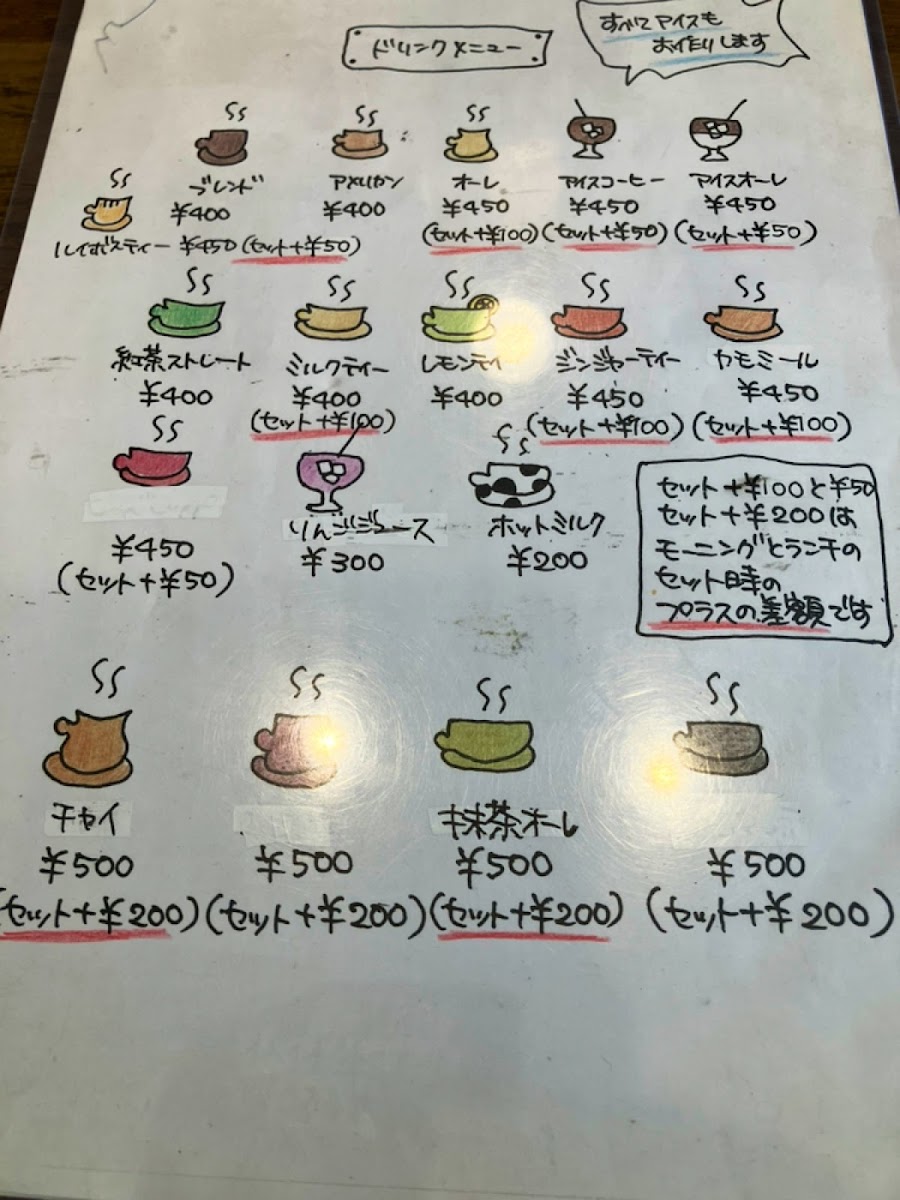 ドリンクメニュー
すべてアイスも
お作りします
ブレンド
¥400
アメリカン
¥400
オーレ
¥450
(セット+¥100)
アイスコーヒー
¥450
(セット+¥50)
アイスオーレ
¥450
(セット+¥50)
ルイボスティー ¥450 (セット+¥50)
紅茶ストレート
¥400
ミルクティー
¥400
(セット+¥100)
レモンティ
¥400
ジンジャーティー
¥450
(セット+¥100)
カモミール
¥450
(セット+¥100)
¥450
(セット+¥50)
りんごジュース
¥300
ホットミルク
¥200
セット+¥100と¥50
セット+¥200は
モーニングとランチの
セット時の
プラスの差額です
チャイ
¥500
(セット+¥200)
¥500
(セット+¥200)
抹茶オーレ
¥500
(セット+¥200)
¥500
(セット+¥200)